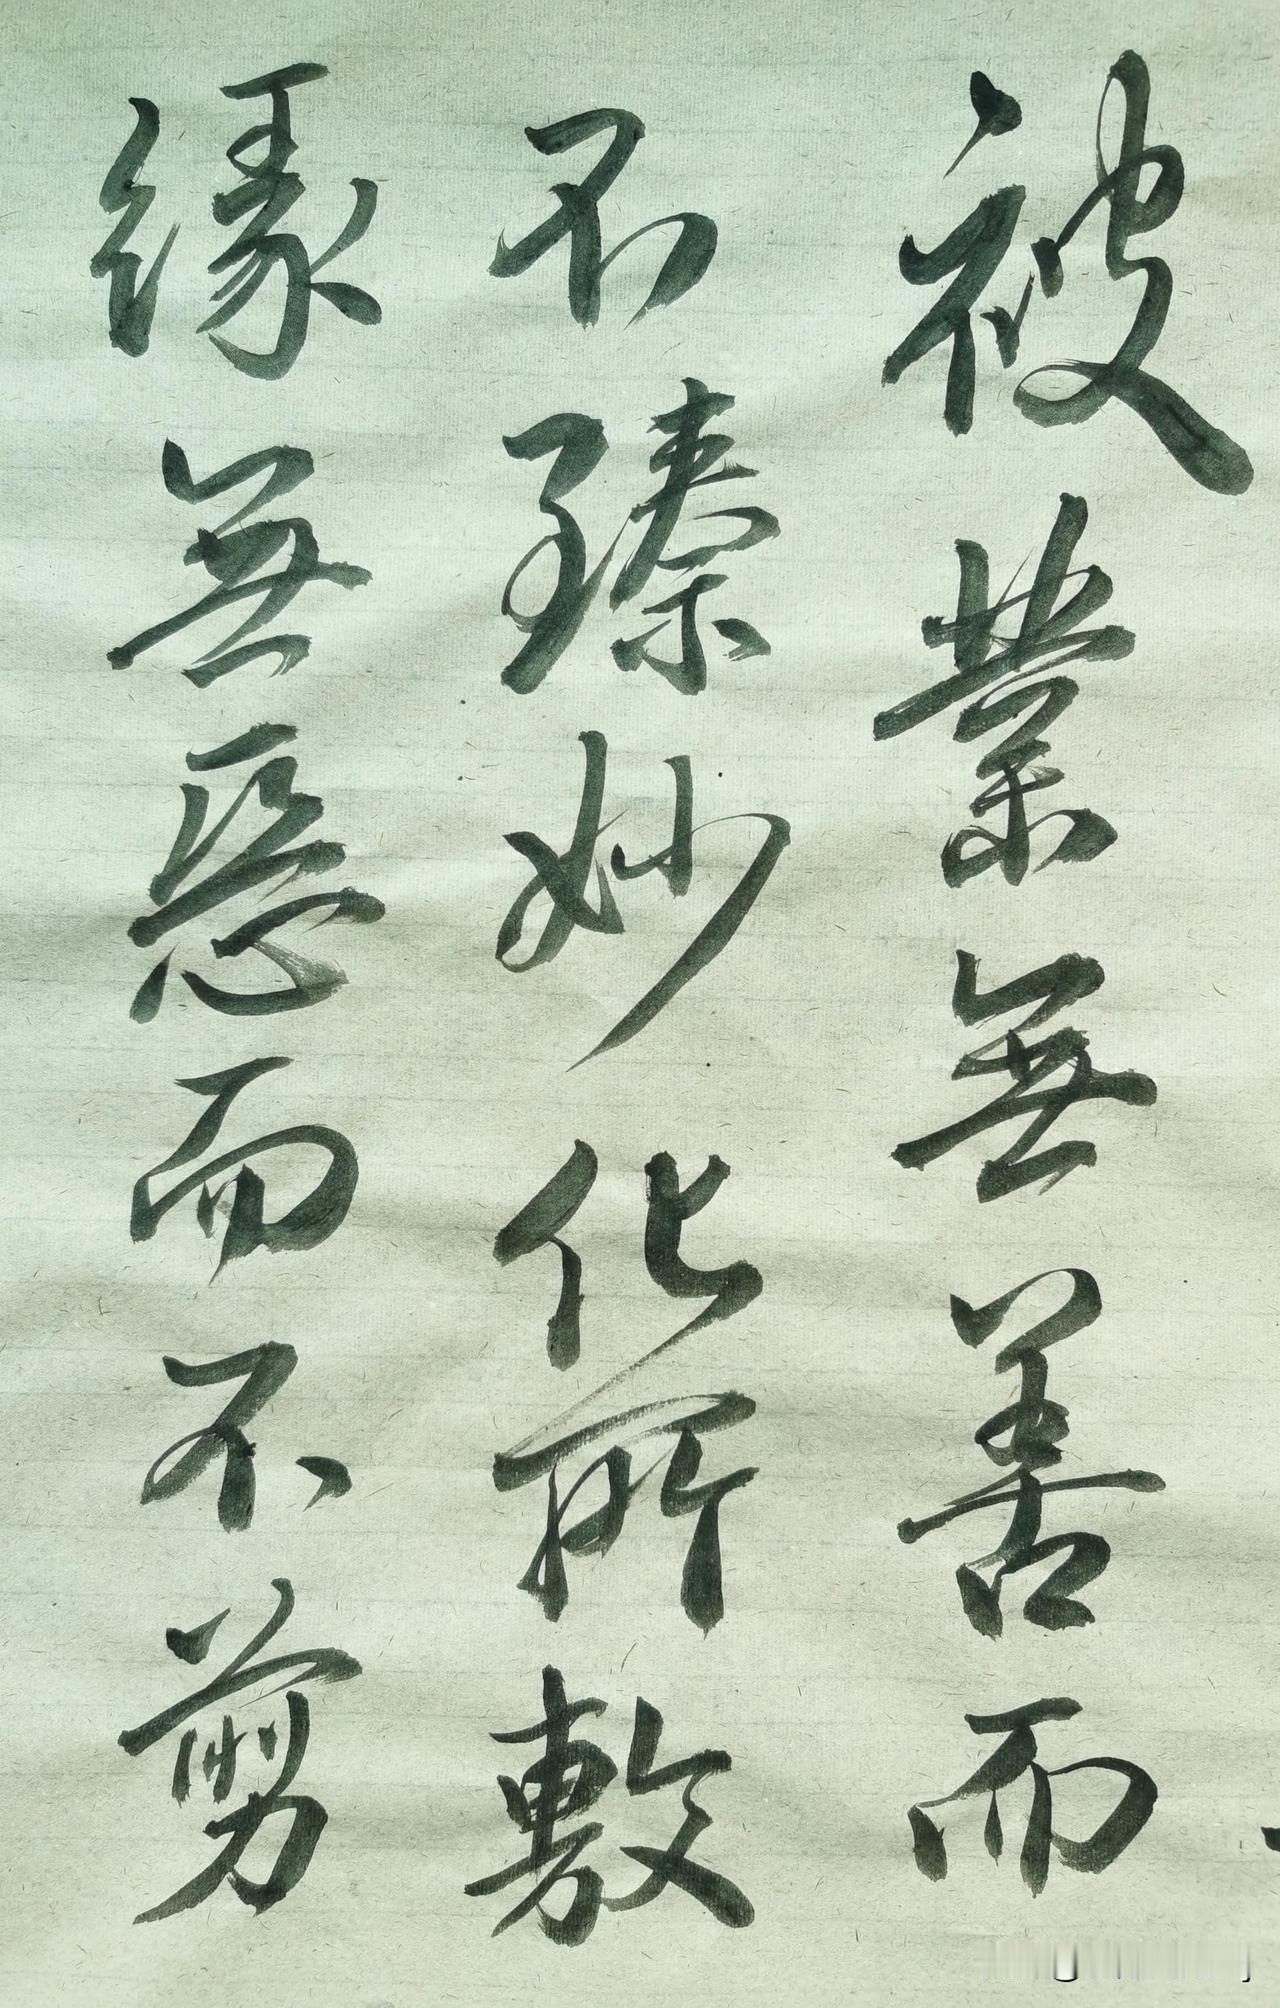 被業無善而
不臻妙化所敷
缘無惡而不剪